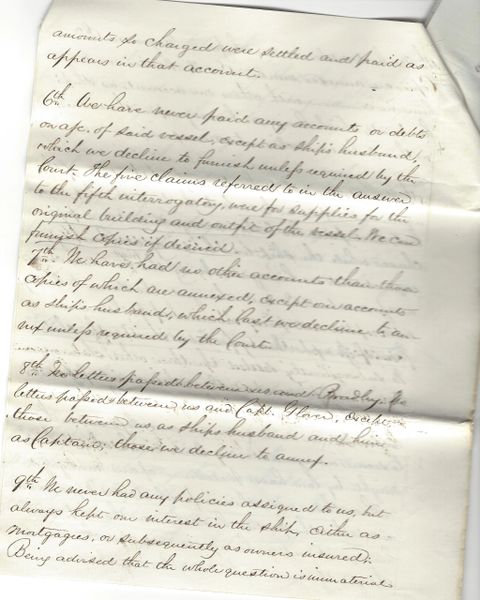 amounts so charged were settled and paid as
appears in that account.
6th We have never paid any accounts or debts
on a/c. of said vessel, except as ship's husband,
which we decline to furnish unless required by the
Court. The five claims referred to in the answer
to the fifth interrogatory, were for supplies for the
original building and outfit of the vessel. We can
furnish copies if desired.
7th We have had no other accounts than those
copies of which are annexed, except our accounts
as ship's husband, which last we decline to an-
nex unless required by the Court.
8th No letters passed between us and No
letters passed between us and Capt. Glover, except
those between us as ships husband and him
as Captain; those we decline to annex.
9th We never had any policies assigned to us, but
always kept our interest in the ship, either as
mortgagees, or subsequently as owners insured;
Being advised that the whole question is immaterial